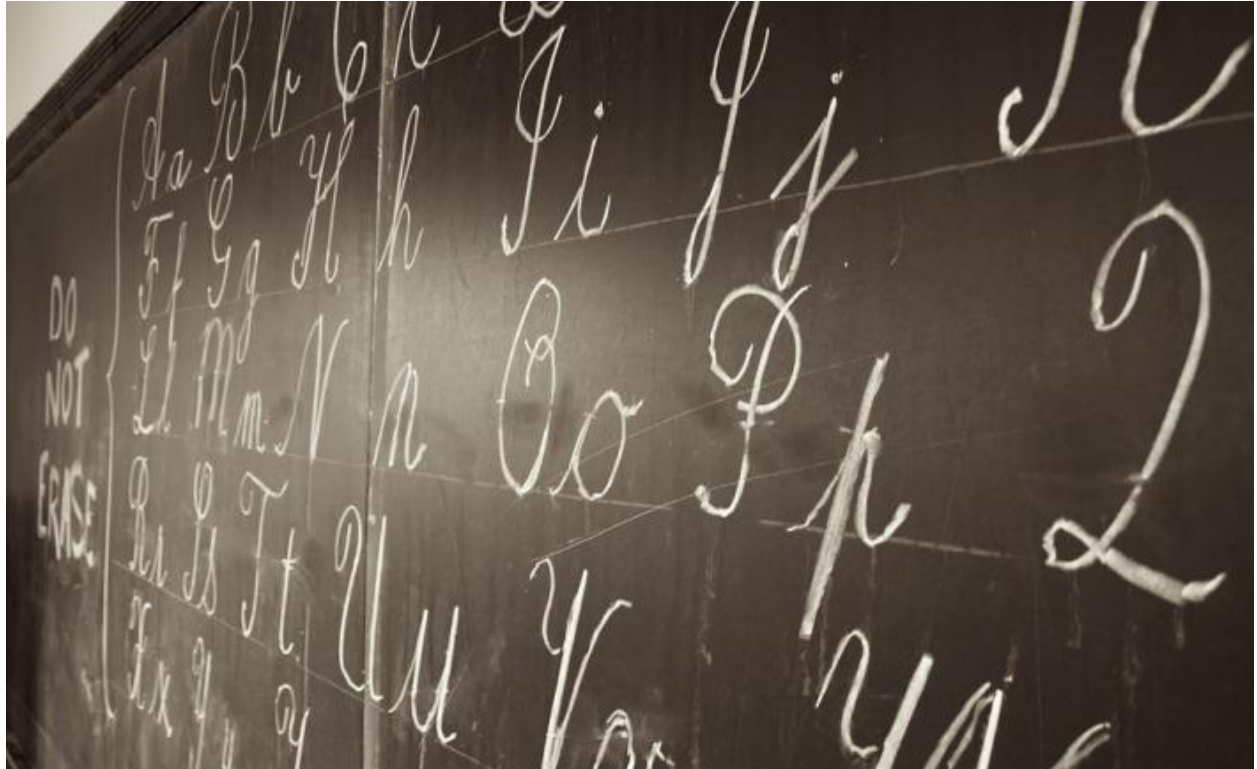 DO
NOT
ERASE
Aa Bb C
Ff Gg Hh Ii Jj
Ll Mm Nn Oo Pp Q
Rr Ss Tt Uu V
Xx Yy